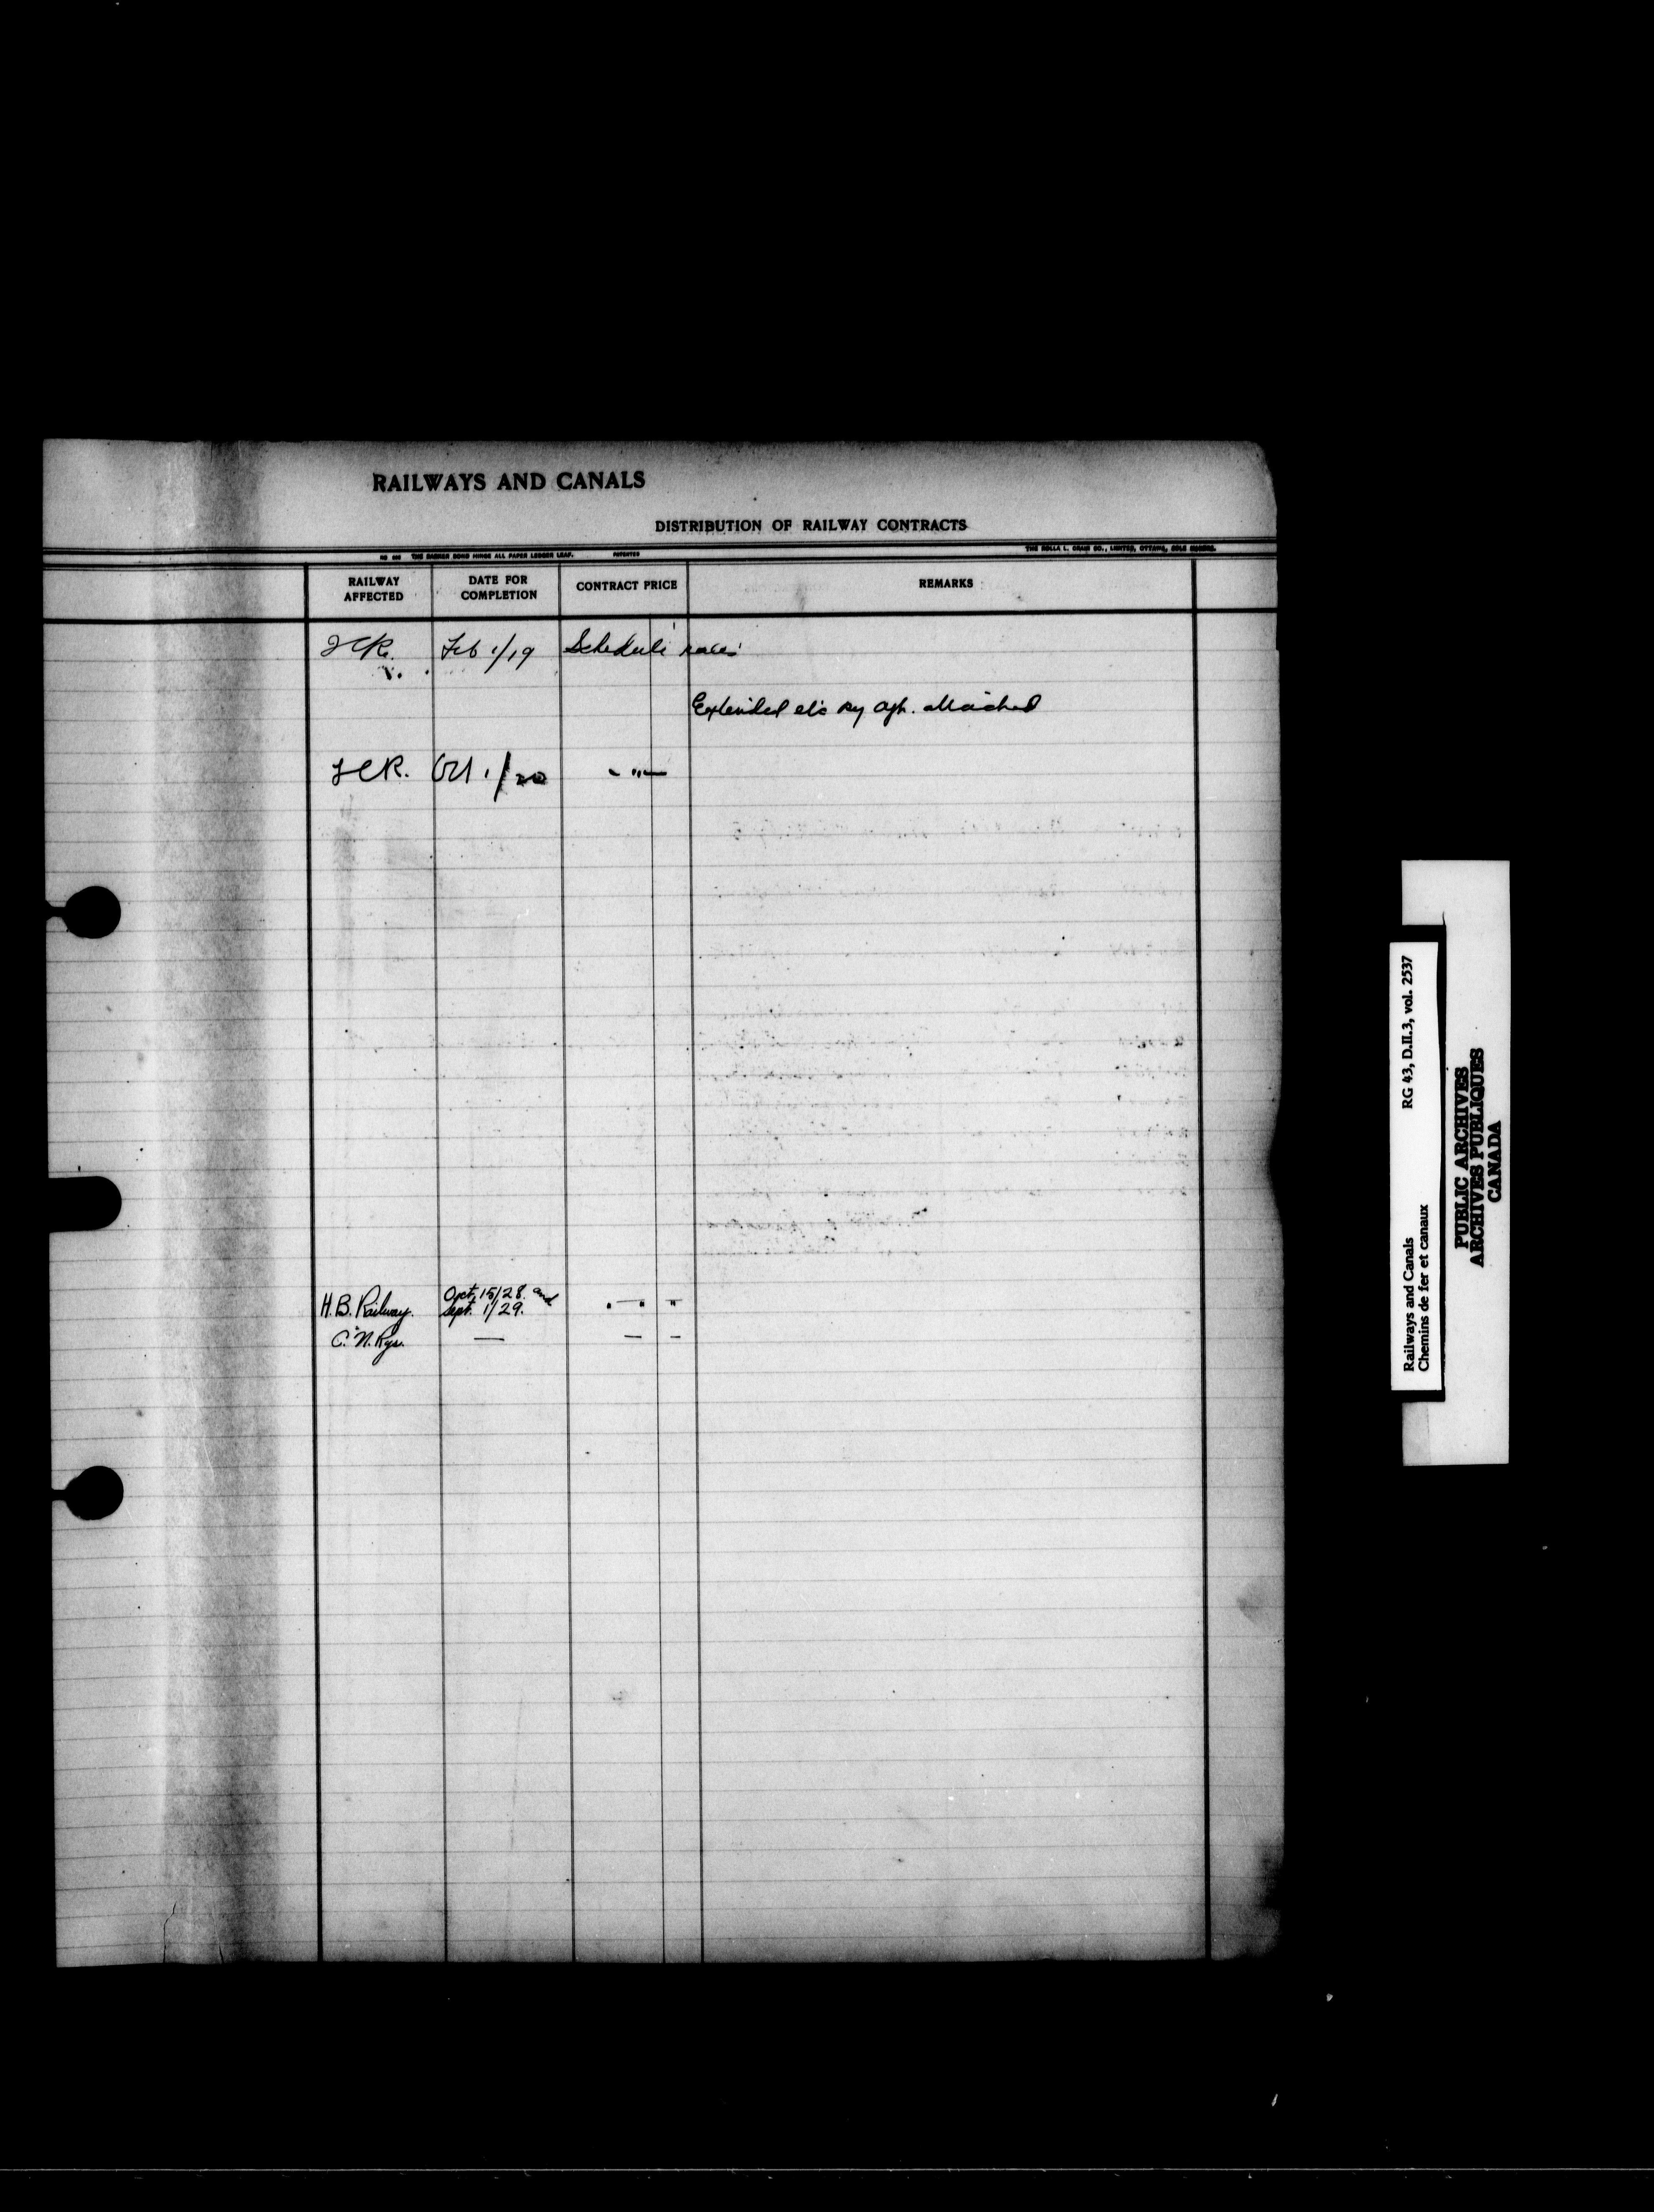 RAILWAYS AND CANALS
DISTRIBUTION OF RAILWAY CONTRACTS
THE BARBER BOND HINGE ALL PAPER LEDGER LEAF. PATENTED THE ROLLA L. CRAIN CO., LIMITED, OTTAWA, SOLE MAKERS.
RAILWAY AFFECTED DATE FOR COMPLETION CONTRACT PRICE REMARKS
ICR. Feb 1/19 Schedule rates
Extended by agt. attached
ICR. Oct 1/20 - " -
H.B. Railway. Oct. 15/28. and Sept. 1/29. " " "
C.N. Rys. — — -
Railways and Canals RG 43, D.II.3, vol. 2537
Chemins de fer et canaux
PUBLIC ARCHIVES
ARCHIVES PUBLIQUES
CANADA